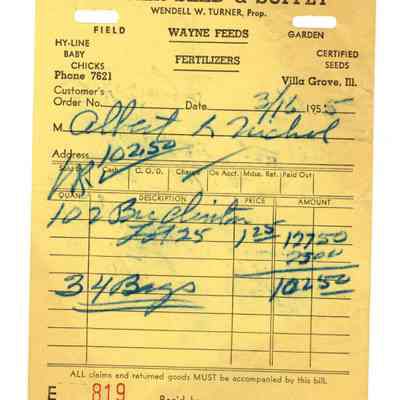 SEED & SUPPLY
WENDELL W. TURNER, Prop.
FIELD WAYNE FEEDS GARDEN
HY-LINE BABY CHICKS FERTILIZERS CERTIFIED SEEDS
Phone 7621 Villa Grove, Ill.
Customer's
Order No. Date 3/16 1955
M Albert L Nichol
Address 102.50
Cash C. O. D. Charge On Acct. Mdse. Ret. Paid Out
QUAN. DESCRIPTION PRICE AMOUNT
102 Bu Clinton 1.25 127 50
Lot 25 25 00
34 Bags 102 50
ALL claims and returned goods MUST be accompanied by this bill.
E 819 Rec'd by